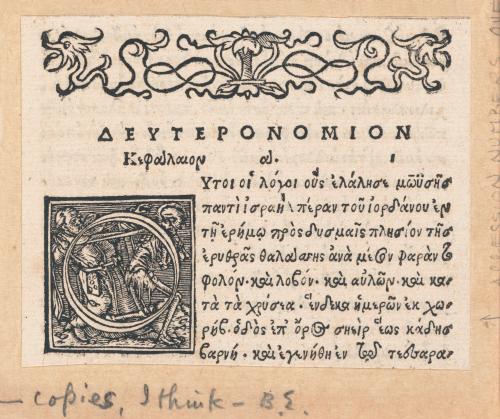 ΔΕΥΤΕΡΟΝΟΜΙΟΝ
Κεφάλαιον α. 1
Οὗτοι οἱ λόγοι οὓς ἐλάλησε μωϋσῆς
παντὶ ἰσραὴλ πέραν τοῦ ἰορδάνου ἐν
τῇ ἐρήμῳ πρὸς δυσμαῖς πλησίον τῆς
ἐρυθρᾶς θαλάσσης ἀνὰ μέσον φαρὰν καὶ
φολόν. καὶ λοβόν. καὶ αὐλῶν. καὶ κα
τὰ τὰ χρύσεα. ἕνδεκα ἡμερῶν ἐκ χω
ρήβ. ὁδὸς ἐπ' ὄρος σηεὶρ ἕως κάδης
βαρνή. καὶ ἐγενήθη ἐν τῷ τεσσαρα
— copies, I think — B.E.